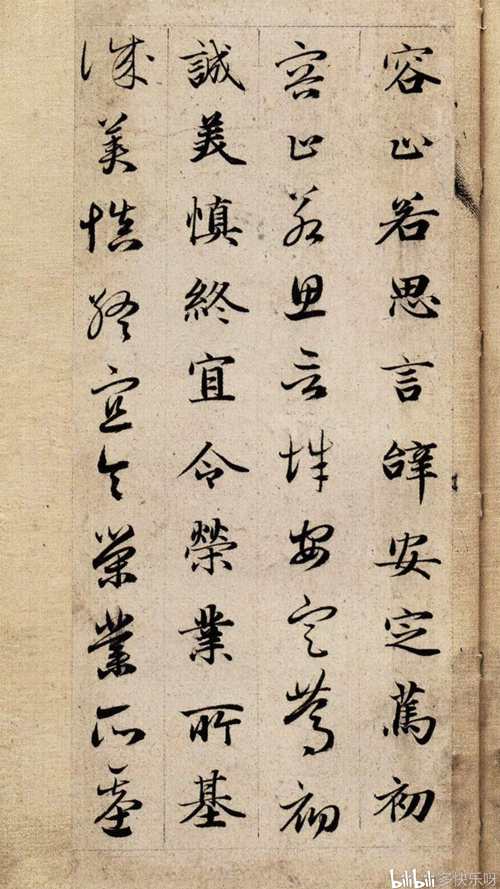 容止若思言辞安定篤初
容止若思言辞安定篤初
誠美慎終宜令榮業所基
誠美慎終宜令榮業所基
bilibili 多快乐呀